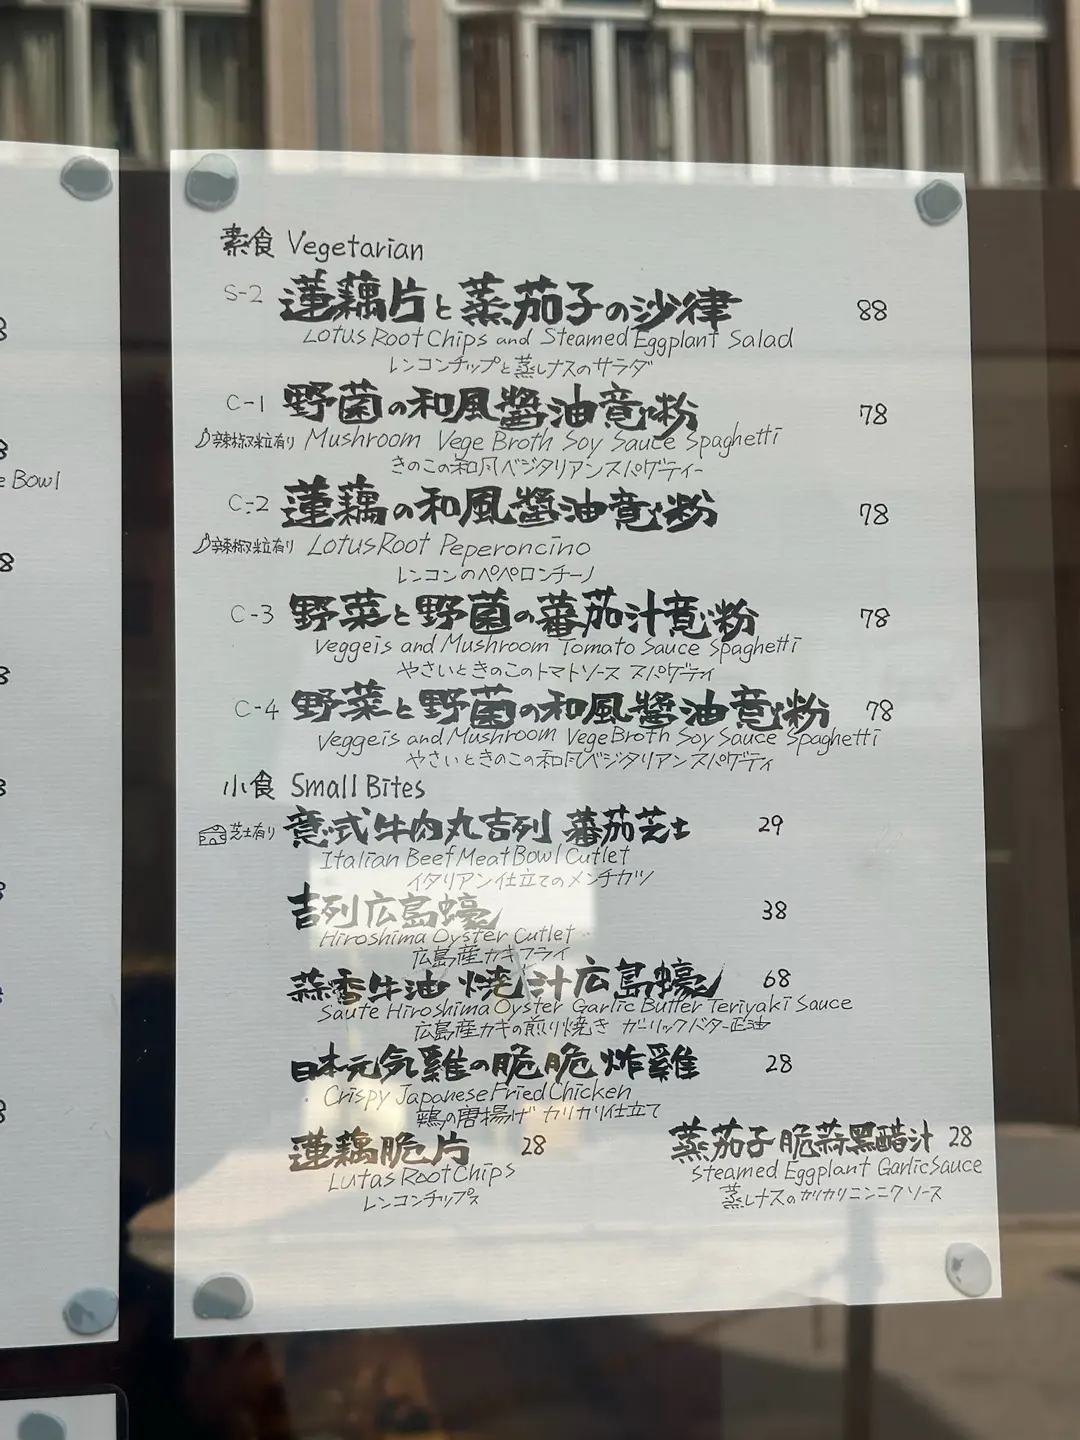 素食 Vegetarian
S-2 蓮藕片と蒸茄子の沙律 88
Lotus Root Chips and Steamed Eggplant Salad
レンコンチップと蒸しナスのサラダ
C-1 野菌の和風醬油意粉 78
辣椒粒有り Mushroom Vege Broth Soy Sauce Spaghetti
きのこの和风ベジタリアンスパゲティー
C-2 蓮藕の和風醬油意粉 78
辣椒粒有り Lotus Root Peperoncino
レンコンのペペロンチーノ
C-3 野菜と野菌の蕃茄汁意粉 78
Veggeis and Mushroom Tomato Sauce Spaghetti
やさいときのこのトマトソース スパゲティ
C-4 野菜と野菌の和風醬油意粉 78
Veggeis and Mushroom Vege Broth Soy Sauce Spaghetti
やさいときのこの和风ベジタリアンスパゲティ
小食 Small Bites
芝士有り 意式牛肉丸吉列 蕃茄芝士 29
Italian Beef Meat Bowl Cutlet
イタリアン仕立てのメンチカツ
吉列広島蠔 38
Hiroshima Oyster Cutlet
広島産カキフライ
蒜香牛油 燒汁広島蠔 68
Saute Hiroshima Oyster Garlic Butter Teriyaki Sauce
広島産カキの煎り焼き ガーリックバター正油
日本元気雞の脆脆炸雞 28
Crispy Japanese Fried Chicken
鶏の唐揚げ カリカリ仕立て
蓮藕脆片 28
Lutas Root Chips
レンコンチップス
蒸茄子脆蒜黑醋汁 28
Steamed Eggplant Garlic Sauce
蒸しナスのカリカリニンニクソース
e Bowl